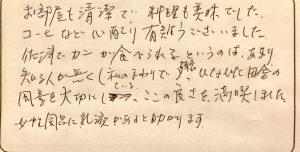 お部屋も清潔で、料理も美味でした。
コーヒーなど心配り有難うございました。
佐津でカニが食べられるというのは、あまり
知る人が無く(私のまわりで)ひなびた田舎の
風景を大切にしている、ここの良さを満喫しました
女性風呂に乳液があると助かります